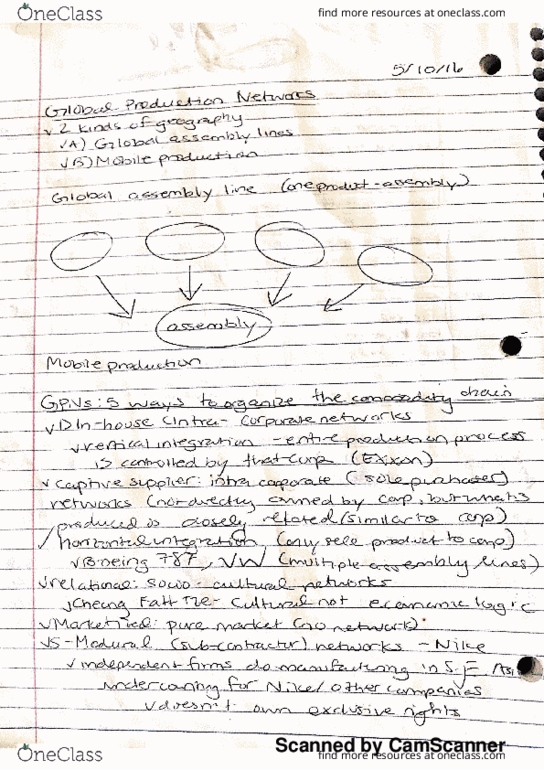 OneClass
find more resources at oneclass.com
5/10/16
Global Production Networks
✓ 2 kinds of geography
✓A) Global assembly lines
✓B) Mobile production
Global assembly line (one product-assembly)
assembly
Mobile production
GPNs: 5 ways to organize the commodity chain
✓1) In-house (intra- corporate networks
✓vertical integration - entire production process
is controlled by that corp (Exxon)
✓captive supplier: intra corporate (sole purchaser)
networks (not directly owned by corp, but what is
produced is closely related/similar to corp)
✓horizontal integration (only sell product to corp)
✓Boeing 787, VW (multiple assembly lines)
✓relational: socio-cultural networks
✓Cheong Fatt Tze- Cultural not economic logic
✓Market: pure market (no network)
✓5- Modural (sub-contractor) networks - Nike
✓independent firms do manufacturing in S.E Asia
for Nike/other companies
✓doesn't own exclusive rights
Scanned by CamScanner
OneClass
find more resources at oneclass.com